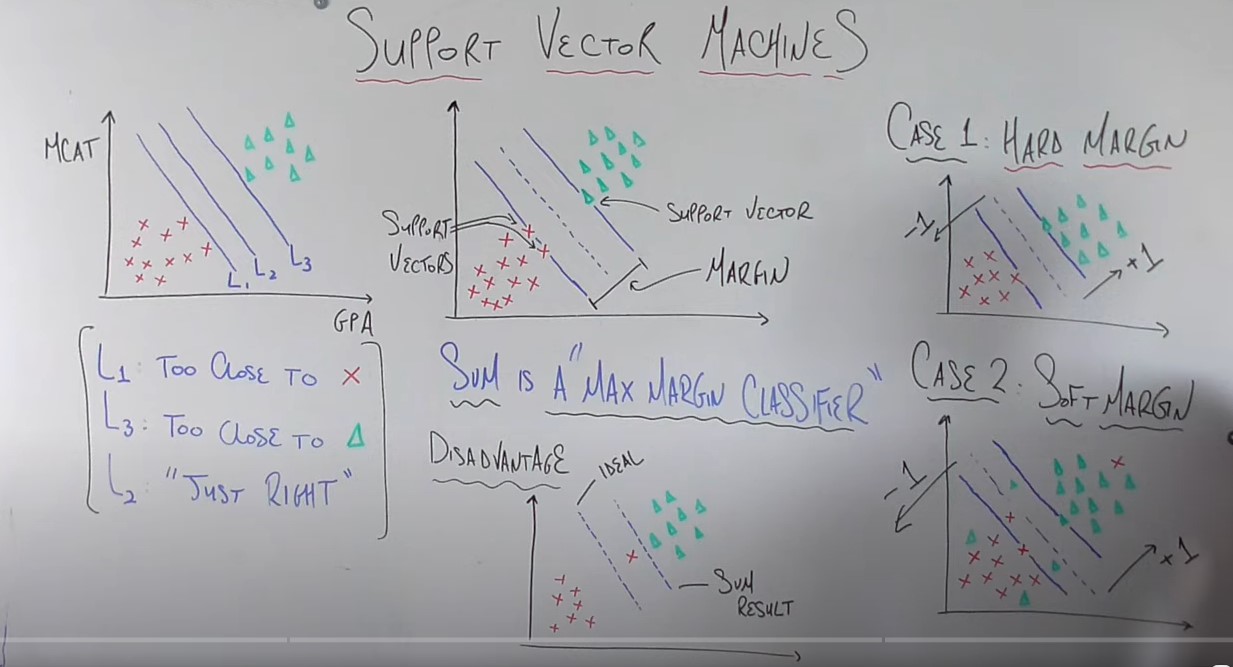 SUPPORT VECTOR MACHINES
MCAT
L1
L2
L3
GPA
L1: TOO CLOSE TO X
L3: TOO CLOSE TO Δ
L2: "JUST RIGHT"
SUPPORT
VECTORS
SUPPORT VECTOR
MARGIN
SVM IS A "MAX MARGIN CLASSIFIER"
DISADVANTAGE
IDEAL
SVM
RESULT
CASE 1: HARD MARGIN
-1
+1
CASE 2: SOFT MARGIN
-1
+1